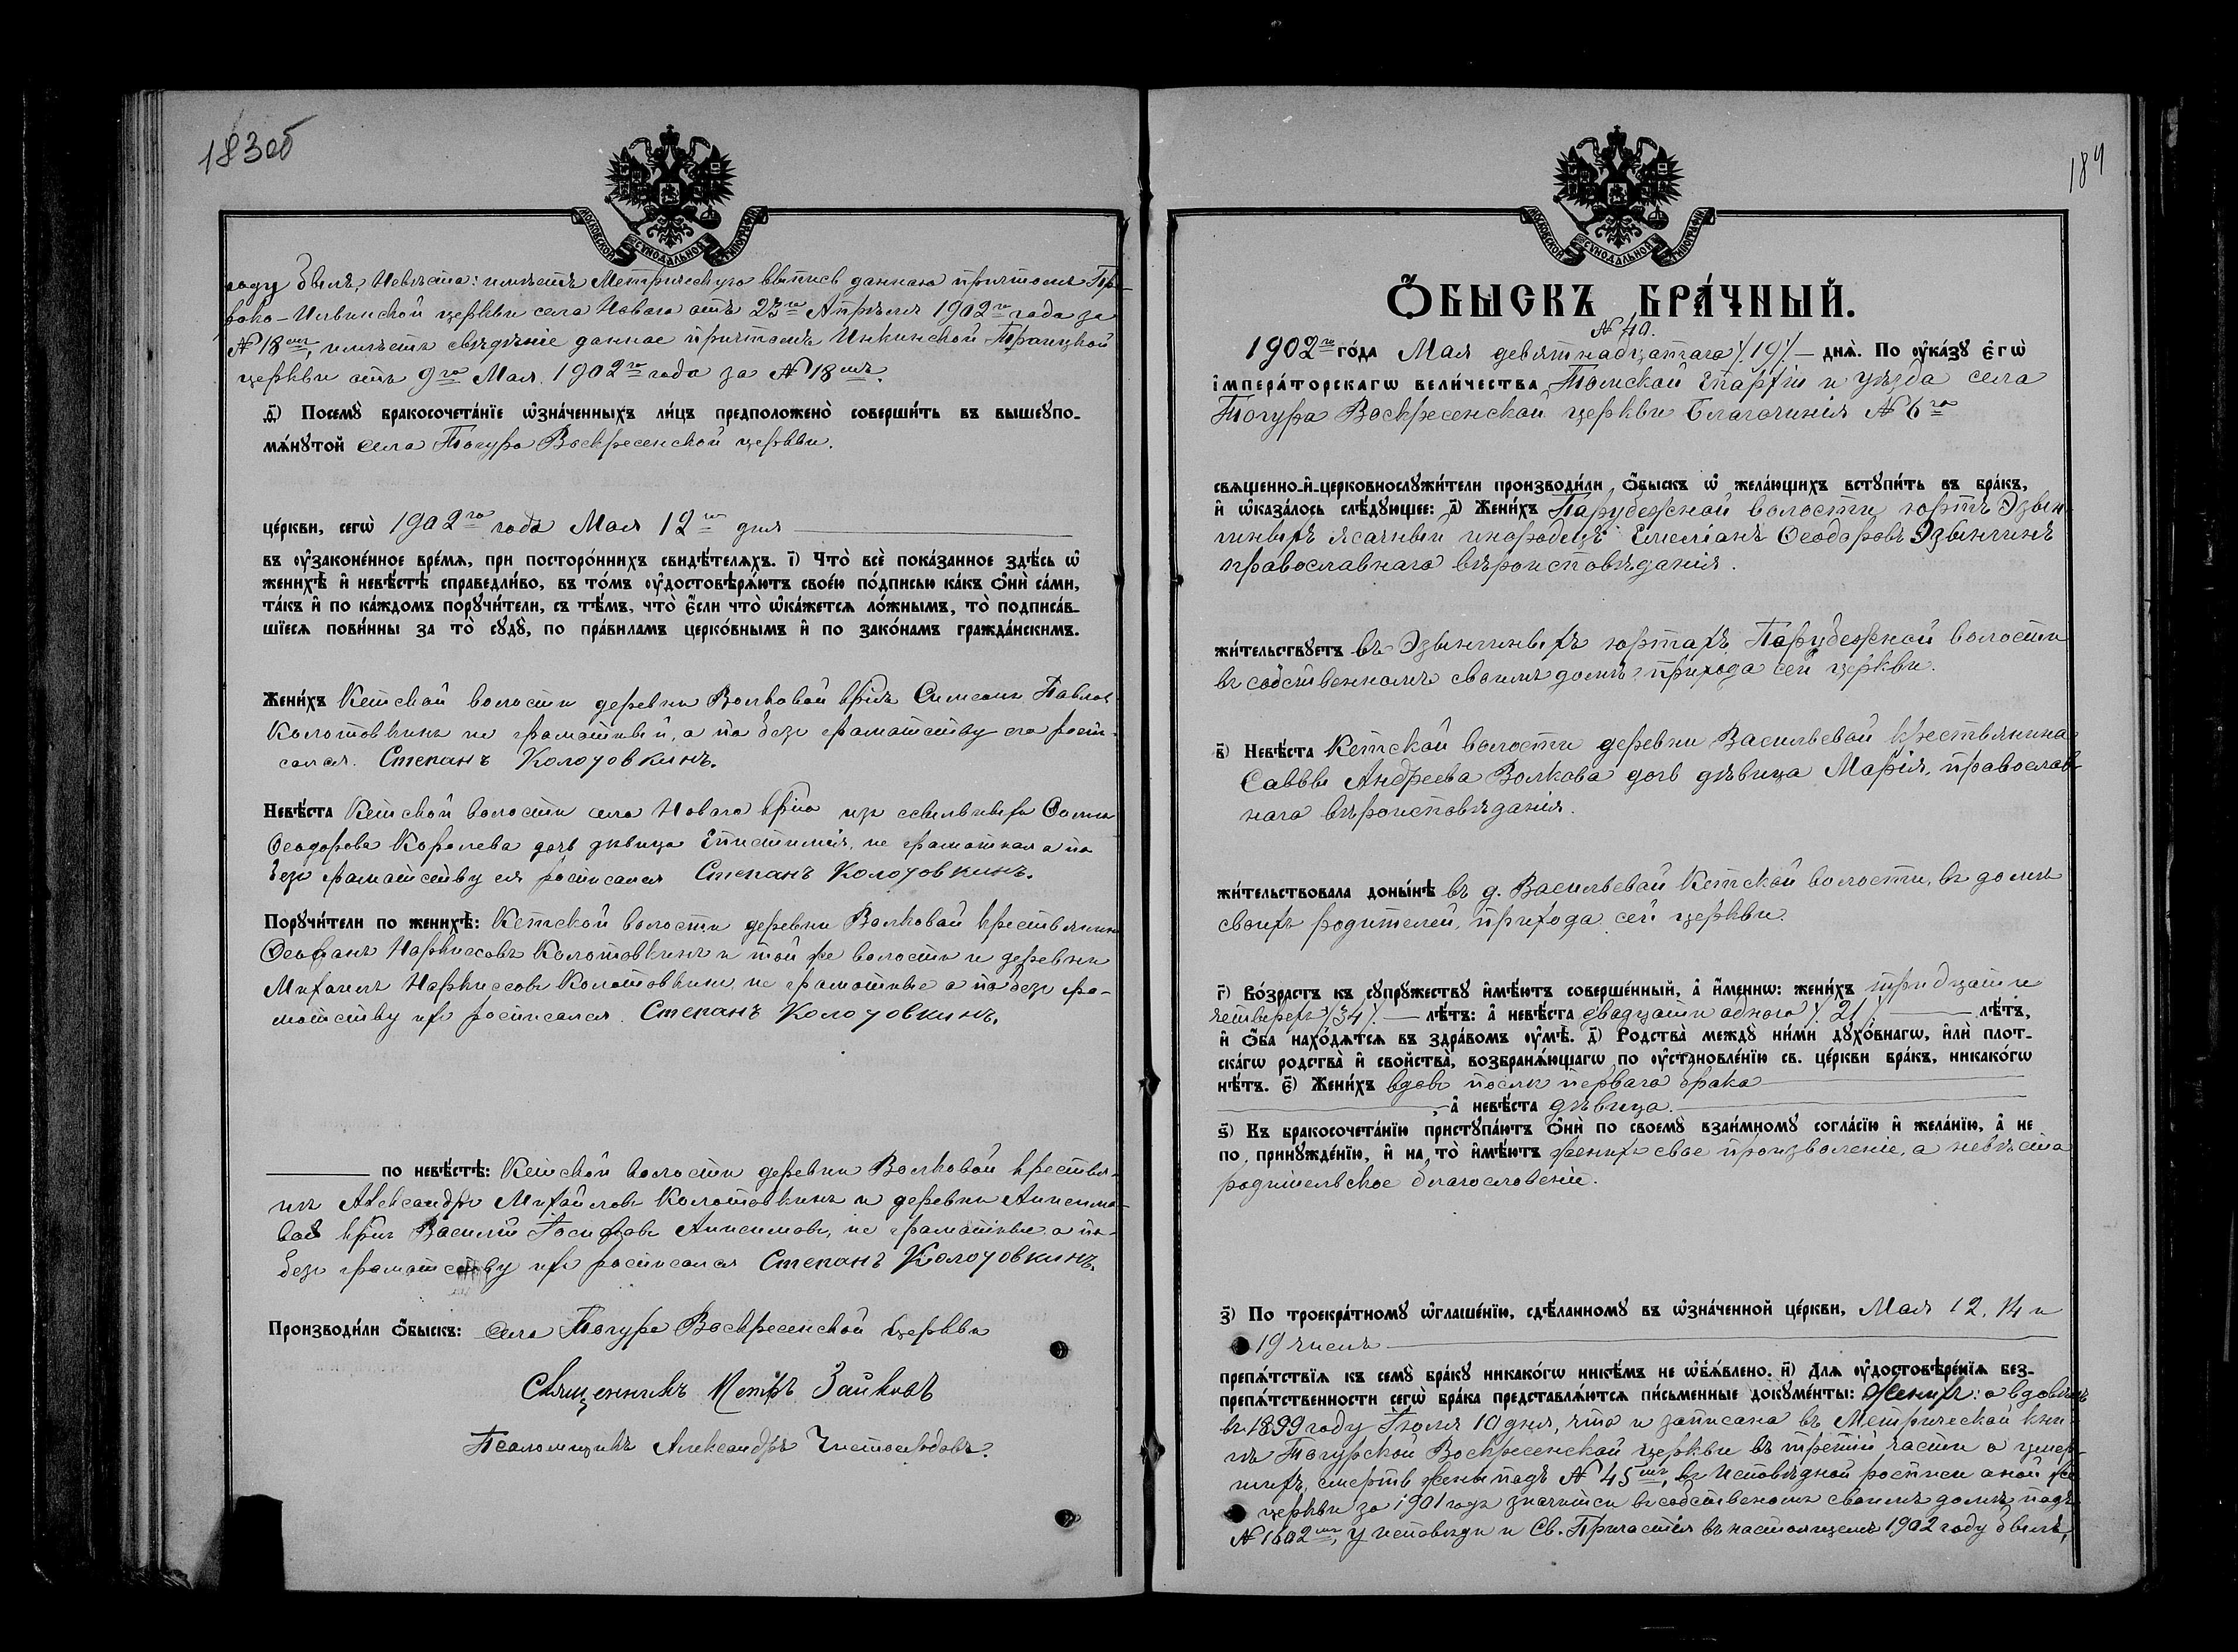 183об
МОСКОВСКОЙ СѴНОДАЛЬНОЙ ТИПОГРАФІИ
году былъ, Невѣста: имѣетъ Метрическую выпись данною причтомъ Про-
роко-Ильинской церкви села Новаго отъ 23го Апрѣля 1902го года за
№ 18мъ, имѣетъ свѣдѣніе данное причтомъ Инкинской Троицкой
церкви отъ 9го Мая 1902го года за № 18мъ.
Ѳ҃) Посемꙋ̀ бракосочета́нїе ѡ҆зна́ченныхъ ли́цъ предположено̀ соверши́ть въ вышеꙋпо-
мѧ́нꙋтой села Тогура Воскресенской церкви.
це́ркви, сегѡ̀ 1902го года Мая 12го дня
въ ᲂу҆зако́ненное вре́мѧ, при посторо́ннихъ свидѣ́телѧхъ. І҃) Что̀ всѐ пока́занное здѣ́сь ѡ҆
женихѣ̀ и҆ невѣ́стѣ справедли́во, въ то́мъ ᲂу҆достовѣрѧ́ютъ свое́ю по́дписью ка́къ ѻ҆нѝ са́ми,
та́къ и҆ по ка́ждомъ порꙋчи́тели, съ тѣ́мъ, что̀ є҆́сли что̀ ѡ҆ка́жетсѧ ло́жнымъ, то̀ подписа́в-
шїесѧ пови́нны за то̀ сꙋдꙋ̀, по пра́виламъ церко́внымъ и҆ по зако́намъ гражда́нскимъ.
Жени́хъ Кетской волости деревни Волковой кр҃нъ Симеонъ Павловъ
Колотовкинъ не грамотный, а по безъ грамотству его роспи-
сался. Степанъ Колотовкинъ.
Невѣ́ста Кетской волости села Новаго кр҃на изъ ссыльныхъ Ѳомы
Ѳеодорова Королева дочь дѣвица Епистимія, не грамотная а по
безъ грамотству ея росписался Степанъ Колотовкинъ.
Порꙋчи́тели по женихѣ̀: Кетской волости деревни Волковой крестьянинъ
Ѳеофанъ Наркиссовъ Колотовкинъ и той же волости и деревни
Михаилъ Наркиссовъ Колотовкинъ не грамотные а по безъ гра-
мотству ихъ росписался. Степанъ Колотовкинъ.
по невѣ́стѣ: Кетской волости деревни Волковой крестья-
нинъ Александръ Михайловъ Колотовкинъ и деревни Анисимо-
вой кр҃нъ Василій Іосифовъ Анисимовъ, не грамотные а по-
безъ грамотству ихъ росписался Степанъ Колотовкинъ.
Производи́ли ѻ҆́быскъ: Села Тогура Воскресенской Церкви
Священникъ Петръ Зайковъ
Псаломщикъ Александръ Чистосердовъ.
184
МОСКОВСКОЙ СѴНОДАЛЬНОЙ ТИПОГРАФІИ
Ѻ҆́БЫСКЪ БРА́ЧНЫЙ.
№ 40.
1902го го́да Мая девятнадцатаго /.19/. днѧ̀. По ᲂу҆ка́зꙋ є҆гѡ̀
і҆мпера́торскагѡ вели́чества Томской Епархіи и уѣзда села
Тогура Воскресенской церкви Благочинія № 6го
свѧщенно-и҆-церковнослꙋжи́тели производи́ли ѻ҆́быскъ ѡ҆ жела́ющихъ вступи́ть въ бра́къ,
и҆ ѡ҆каза́лось слѣ́дꙋющее: а҃) Жени́хъ Парубежной волости юртъ Эзын-
гиныхъ ясачный инородецъ Емеліанъ Ѳеодоровъ Эзынгинъ
православнаго вѣроисповѣданія.
жи́тельствꙋетъ въ Эзынгиныхъ юртахъ Парубежной волости
въ собственномъ своимъ домѣ, прихода сей церкви.
в҃) Невѣ́ста Кетской волости деревни Васильевой крестьянина
Саввы Андреева Волкова дочь дѣвица Марія, православ-
наго вѣроисповѣданія.
жи́тельствовала доны́нѣ въ д. Васильевой Кетской волости, въ домѣ
своихъ родителей, прихода сей церкви.
г҃) Во́зрастъ къ сꙋпрꙋжествꙋ и҆мѣ́ютъ соверше́нный, а҆ и҆́меннѡ: жени́хъ тридцати
четырехъ /34/. лѣ́тъ: а҆ невѣ́ста двадцати одного /.21/. лѣ́тъ,
и҆ ѻ҆́ба нахо́дѧтсѧ въ здра́вомъ ᲂу҆мѣ̀. д҃) Родства̀ междꙋ̀ ни́ми дꙋхо́внагѡ, и҆лѝ плот-
ска́гѡ родства̀ и҆ свойства̀, возбранѧ́ющагѡ по ᲂу҆становле́нїю св. це́ркви бра́къ, никако́гѡ
нѣ́тъ. є҃) Жени́хъ вдовъ послѣ перваго брака
, а҆ невѣ́ста дѣвица.
ѕ҃) Къ бракосочета́нїю пристꙋпа́ютъ ѻ҆нѝ по своемꙋ̀ взаи́мномꙋ согла́сїю и҆ жела́нїю, а҆ не
по принꙋжде́нїю, и҆ на то̀ и҆мѣ́ютъ женихъ свое произволеніе, а невѣста
родительское благословеніе.
з҃) По троекра́тномꙋ ѡ҆глаше́нїю, сдѣ́ланномꙋ въ ѡ҆зна́ченной це́ркви, Мая 12, 14 и
19 числъ
препѧ́тствїѧ къ семꙋ̀ бра́кꙋ никако́гѡ никѣ́мъ не ѡ҆б̾ѧ́влено. и҃) Для ᲂу҆достовѣре́нїѧ без-
препѧ́тственности сегѡ̀ бра́ка представлѧ́ютсѧ пи́сьменные докꙋме́нты: Женихъ: овдовѣлъ
въ 1899 году Іюля 10 дня, что и записано въ Метрической кни-
гѣ Тогурской Воскресенской церкви въ третій части о умер-
шихъ, смерть жены подъ № 45мъ, въ Исповѣдной росписи оной же
церкви за 1901 годъ значится въ собственомъ своимъ домѣ подъ
№ 1602мъ, у исповѣди и Св. Причастія въ настоящемъ 1902 году былъ,